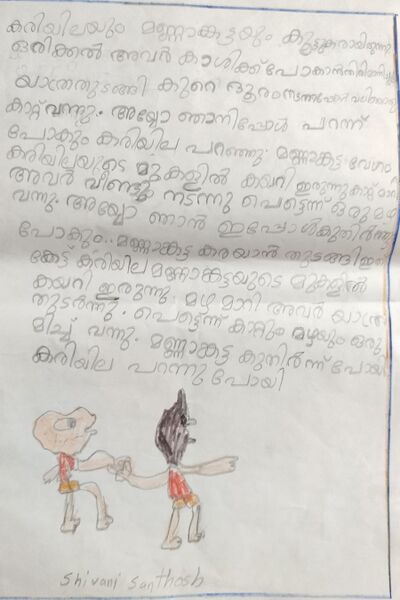 കരിയിലയും മണ്ണാങ്കട്ടയും കൂട്ടുകാരായിരുന്നു
ഒരിക്കൽ അവർ കാശിക്ക് പോകാൻ തീരുമാനിച്ചു
യാത്ര തുടങ്ങി കുറെ ദൂരം നടന്നപ്പോൾ
കാറ്റ് വന്നു. അയ്യോ ഞാനിപ്പോൾ പറന്ന്
പോകും കരിയില പറഞ്ഞു. മണ്ണാങ്കട്ട വേഗം
കരിയിലയുടെ മുകളിൽ കയറി ഇരുന്നു കാറ്റ് മാറി
അവർ വീണ്ടും നടന്നു പെട്ടെന്ന് ഒരു മഴ
വന്നു. അയ്യോ ഞാൻ ഇപ്പോൾ കുതിർന്നു
പോകും.. മണ്ണാങ്കട്ട കരയാൻ തുടങ്ങി ഇത്
കേട്ട് കരിയില മണ്ണാങ്കട്ടയുടെ മുകളിൽ
കയറി ഇരുന്നു. മഴ മാറി അവർ യാത്ര
തുടർന്നു. പെട്ടെന്ന് കാറ്റും മഴയും ഒരു
മിച്ച് വന്നു. മണ്ണാങ്കട്ട കുതിർന്ന് പോയി
കരിയില പറന്നു പോയി
Shivani Santhosh